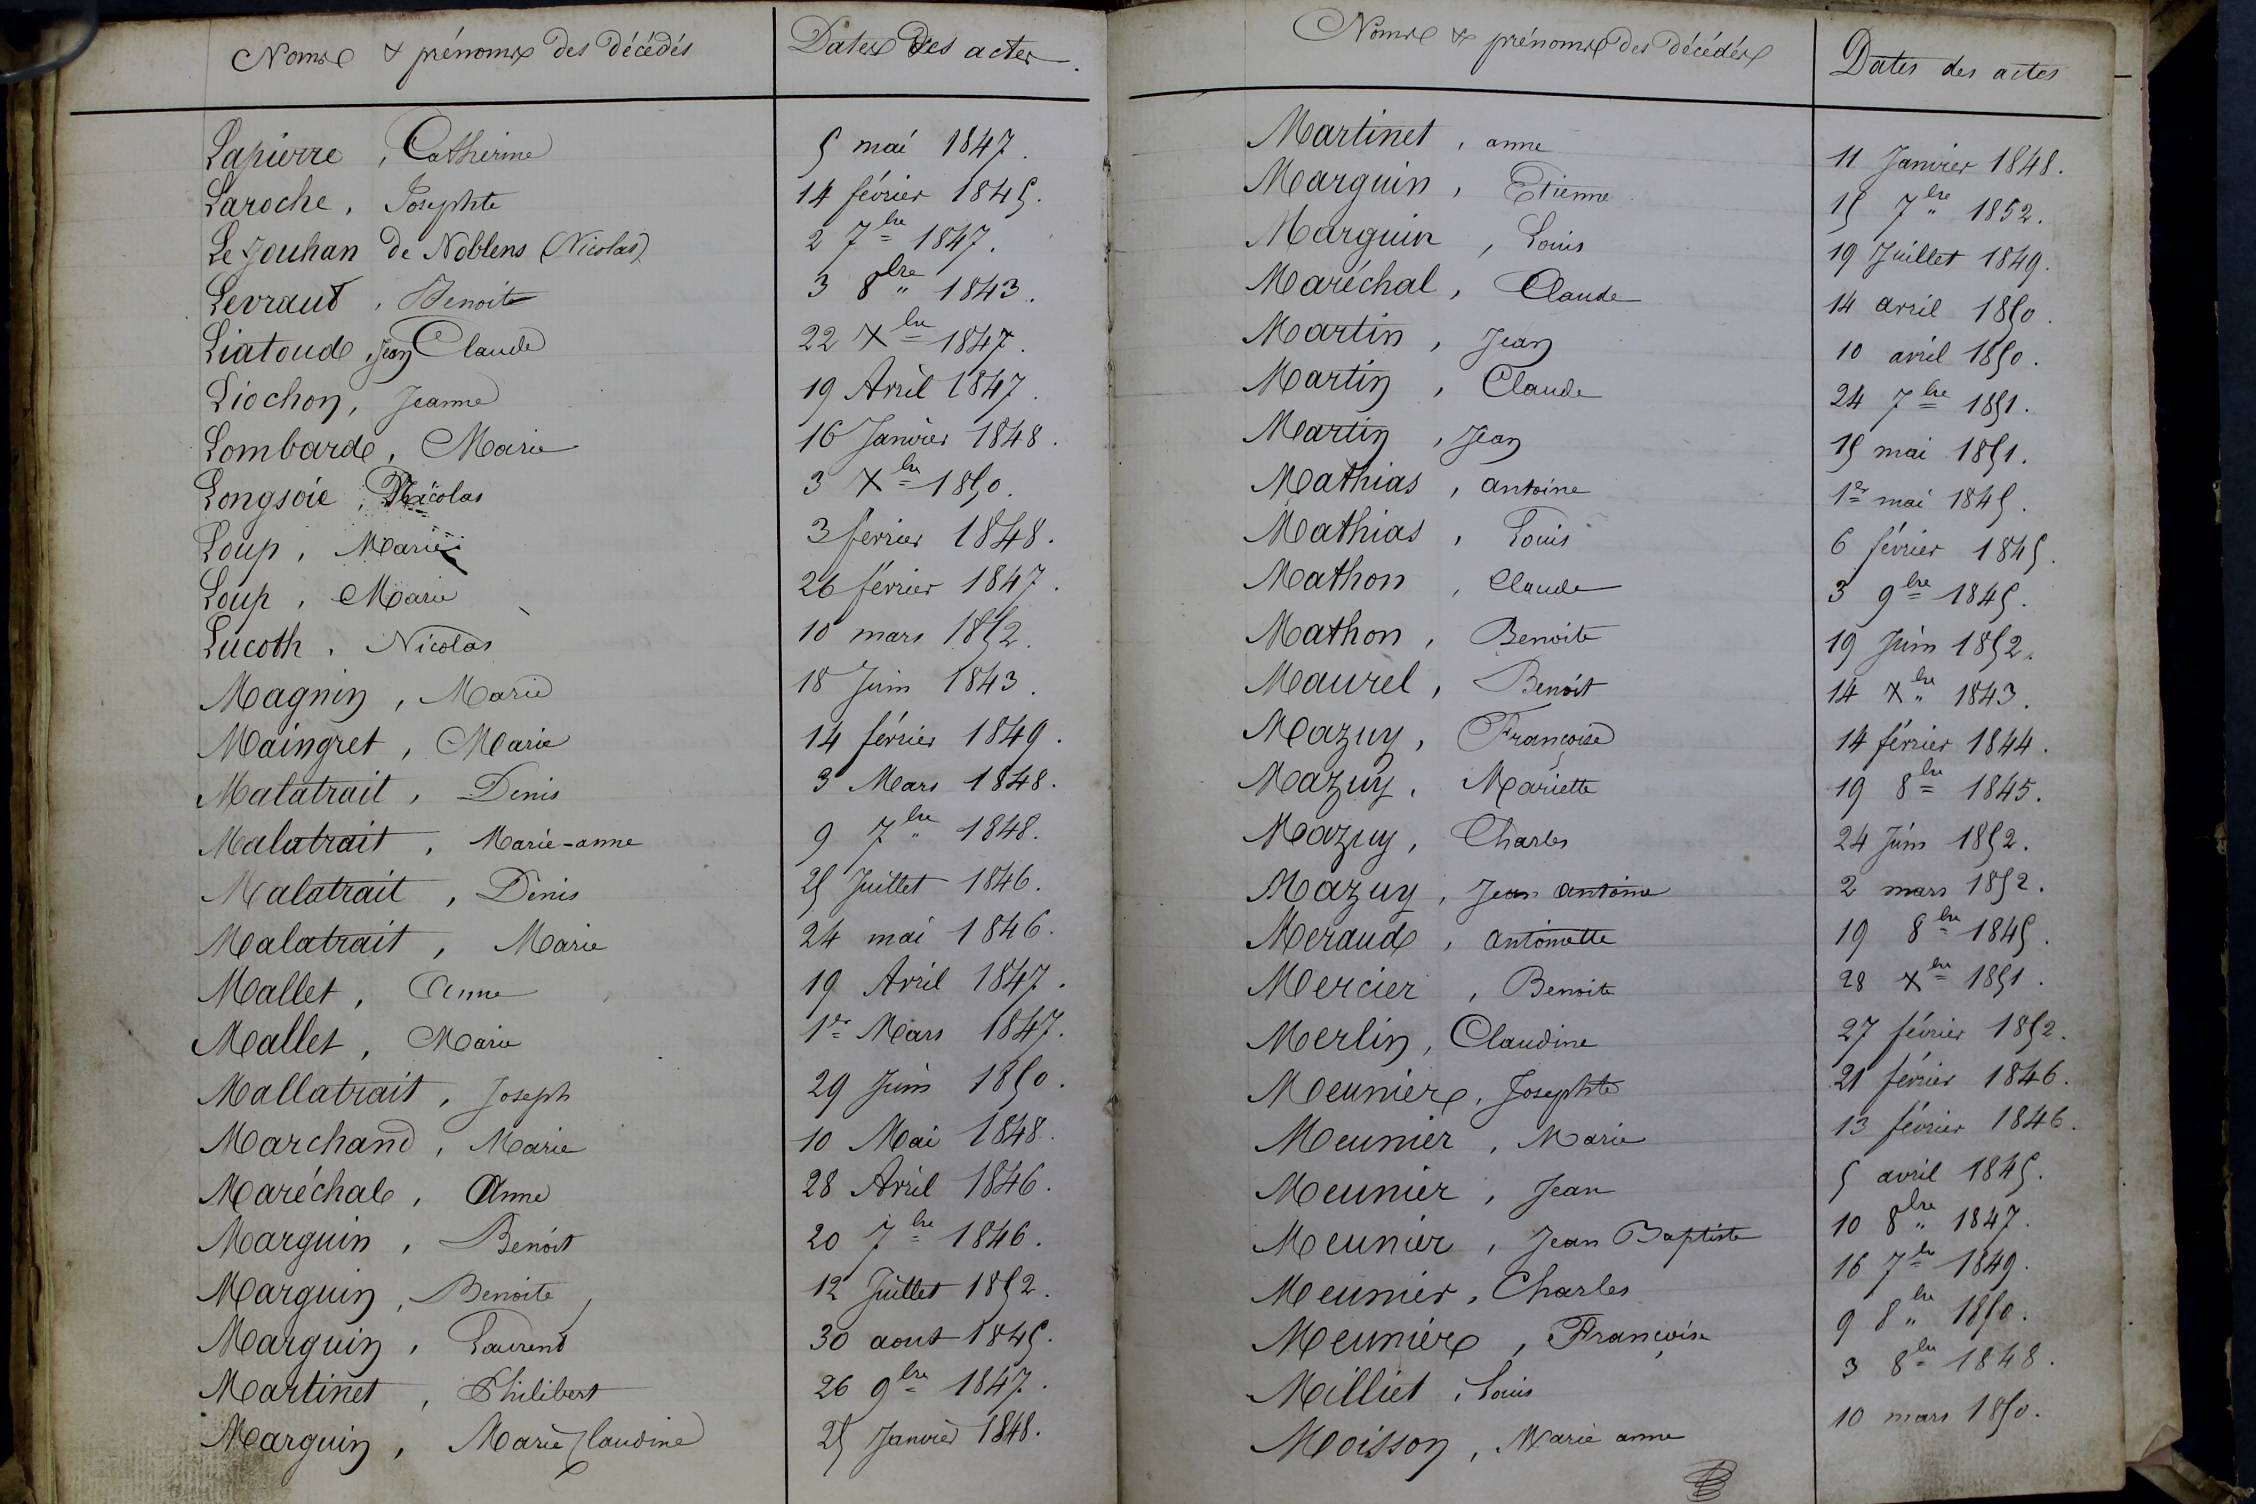 Noms & prénoms des décédés Dates des actes.
Lapierre, Catherine 5 mai 1847.
Laroche, Josephte 14 février 1845.
Le Jouhan de Noblens (Nicolas) 2 7bre 1847.
Levraud, Benoite 3 8bre 1843.
Liatoud, Jean Claude 22 Xbre 1847.
Liochon, Jeanne 19 Avril 1847.
Lombard, Marie 16 Janvier 1848.
Longsoie, Nicolas 3 Xbre 1850.
Loup, Marie 3 février 1848.
Loup, Marie 26 février 1847.
Lucoth, Nicolas 10 mars 1852.
Magnin, Marie 18 Juin 1843.
Maingret, Marie 14 février 1849.
Malatrait, Denis 3 Mars 1848.
Malatrait, Marie-anne 9 7bre 1848.
Malatrait, Denis 25 Juillet 1846.
Malatrait, Marie 24 mai 1846.
Mallet, Anne 19 Avril 1847.
Mallet, Marie 1er Mars 1847.
Mallatrait, Joseph 29 Juin 1850.
Marchand, Marie 10 Mai 1848.
Maréchal, Anne 28 Avril 1846.
Marguin, Benoit 20 7bre 1846.
Marguin, Benoite 12 Juillet 1852.
Marguin, Laurent 30 aout 1845.
Martinet, Philibert 26 9bre 1847.
Marguin, Marie Claudine 25 Janvier 1848.
Noms & prénoms des décédés Dates des actes
Martinet, anne 11 Janvier 1848.
Marguin, Etienne 15 7bre 1852.
Marguin, Louis 19 Juillet 1849.
Maréchal, Claude 14 avril 1850.
Martin, Jean 10 avril 1850.
Martin, Claude 24 7bre 1851.
Martin, Jean 15 mai 1851.
Mathias, antoine 1er mai 1845.
Mathias, Louis 6 février 1845.
Mathon, Claude 3 9bre 1845.
Mathon, Benoite 19 Juin 1852.
Maurel, Benoit 14 Xbre 1843.
Mazuy, Françoise 14 février 1844.
Mazuy, Mariette 19 8bre 1845.
Mazuy, Charles 24 Juin 1852.
Mazuy, Jean antoine 2 mars 1852.
Meraud, antoinette 19 8bre 1845.
Mercier, Benoite 28 Xbre 1851.
Merlin, Claudine 27 février 1852.
Meunier, Josephte 21 février 1846.
Meunier, Marie 13 février 1846.
Meunier, Jean 5 avril 1845.
Meunier, Jean Baptiste 10 8bre 1847.
Meunier, Charles 16 7bre 1849.
Meunier, Françoise 9 8bre 1850.
Milliet, Louis 3 8bre 1848.
Moisson, Marie anne 10 mars 1850.